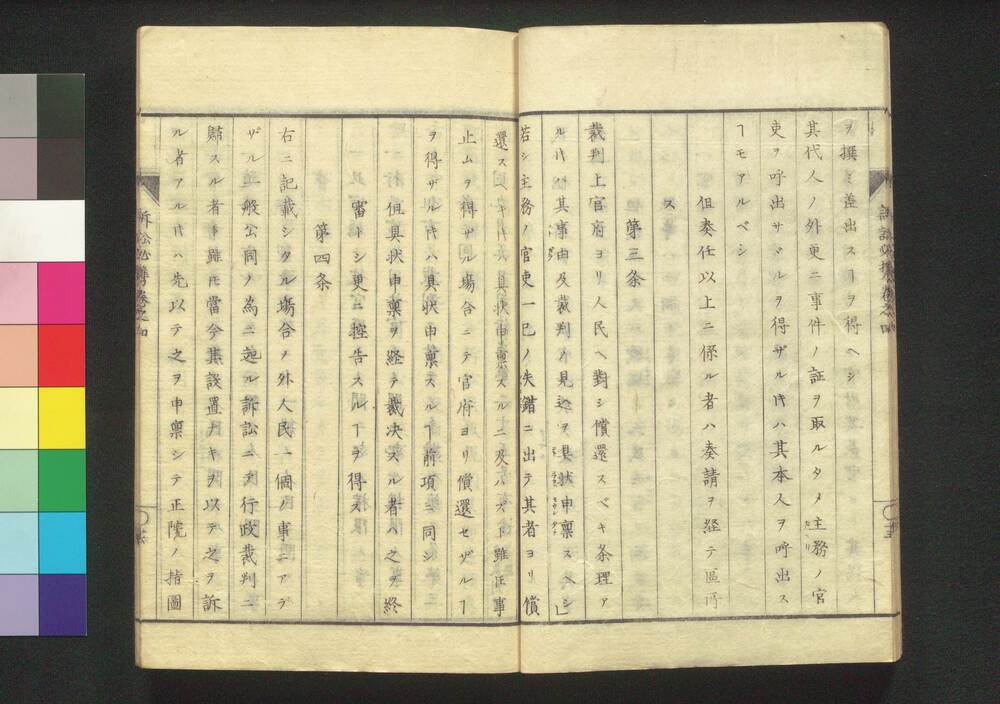 ヲ撰ミ差出スヿヲ得ヘシ
其代人ノ外更ニ事件ノ証ヲ取ルタメ主務ノ官
吏ヲ呼出サヾルヲ得ザルヰハ其本人ヲ呼出ス
ヿモアルベシ
但奏任以上ニ係ル者ハ奏請ヲ経テ區処
ス
第三条
裁判上官府ヨリ人民ヘ對シ償還スベキ条理ア
ルヰハ其事由及裁判ノ見込ヲ具状申禀スヘシ
若シ主務ノ官吏一己ノ失錯ニ出テ其者ヨリ償
還スヘキハ具状申禀スルニ及ハスト雖𪜈事
止ムヲ得サル場合ニテ官府ヨリ償還セザルヿ
ヲ得ザルヰハ具状申禀スルヿ前項ニ同シ
但具状申禀ヲ経テ裁决スル者ハ之ヲ終
審トシ更ニ控告スルヿヲ得ス
第四条
右ニ記載シタル場合ノ外人民一個ノ事ニアラ
ザル一般公同ノ為ニ起ル訴訟ニテ行政裁判ニ
歸スル者ト雖𪜈當今其設置ナキヲ以テ之ヲ訴
ル者アルヰハ先以テ之ヲ申禀シテ正院ノ指圖